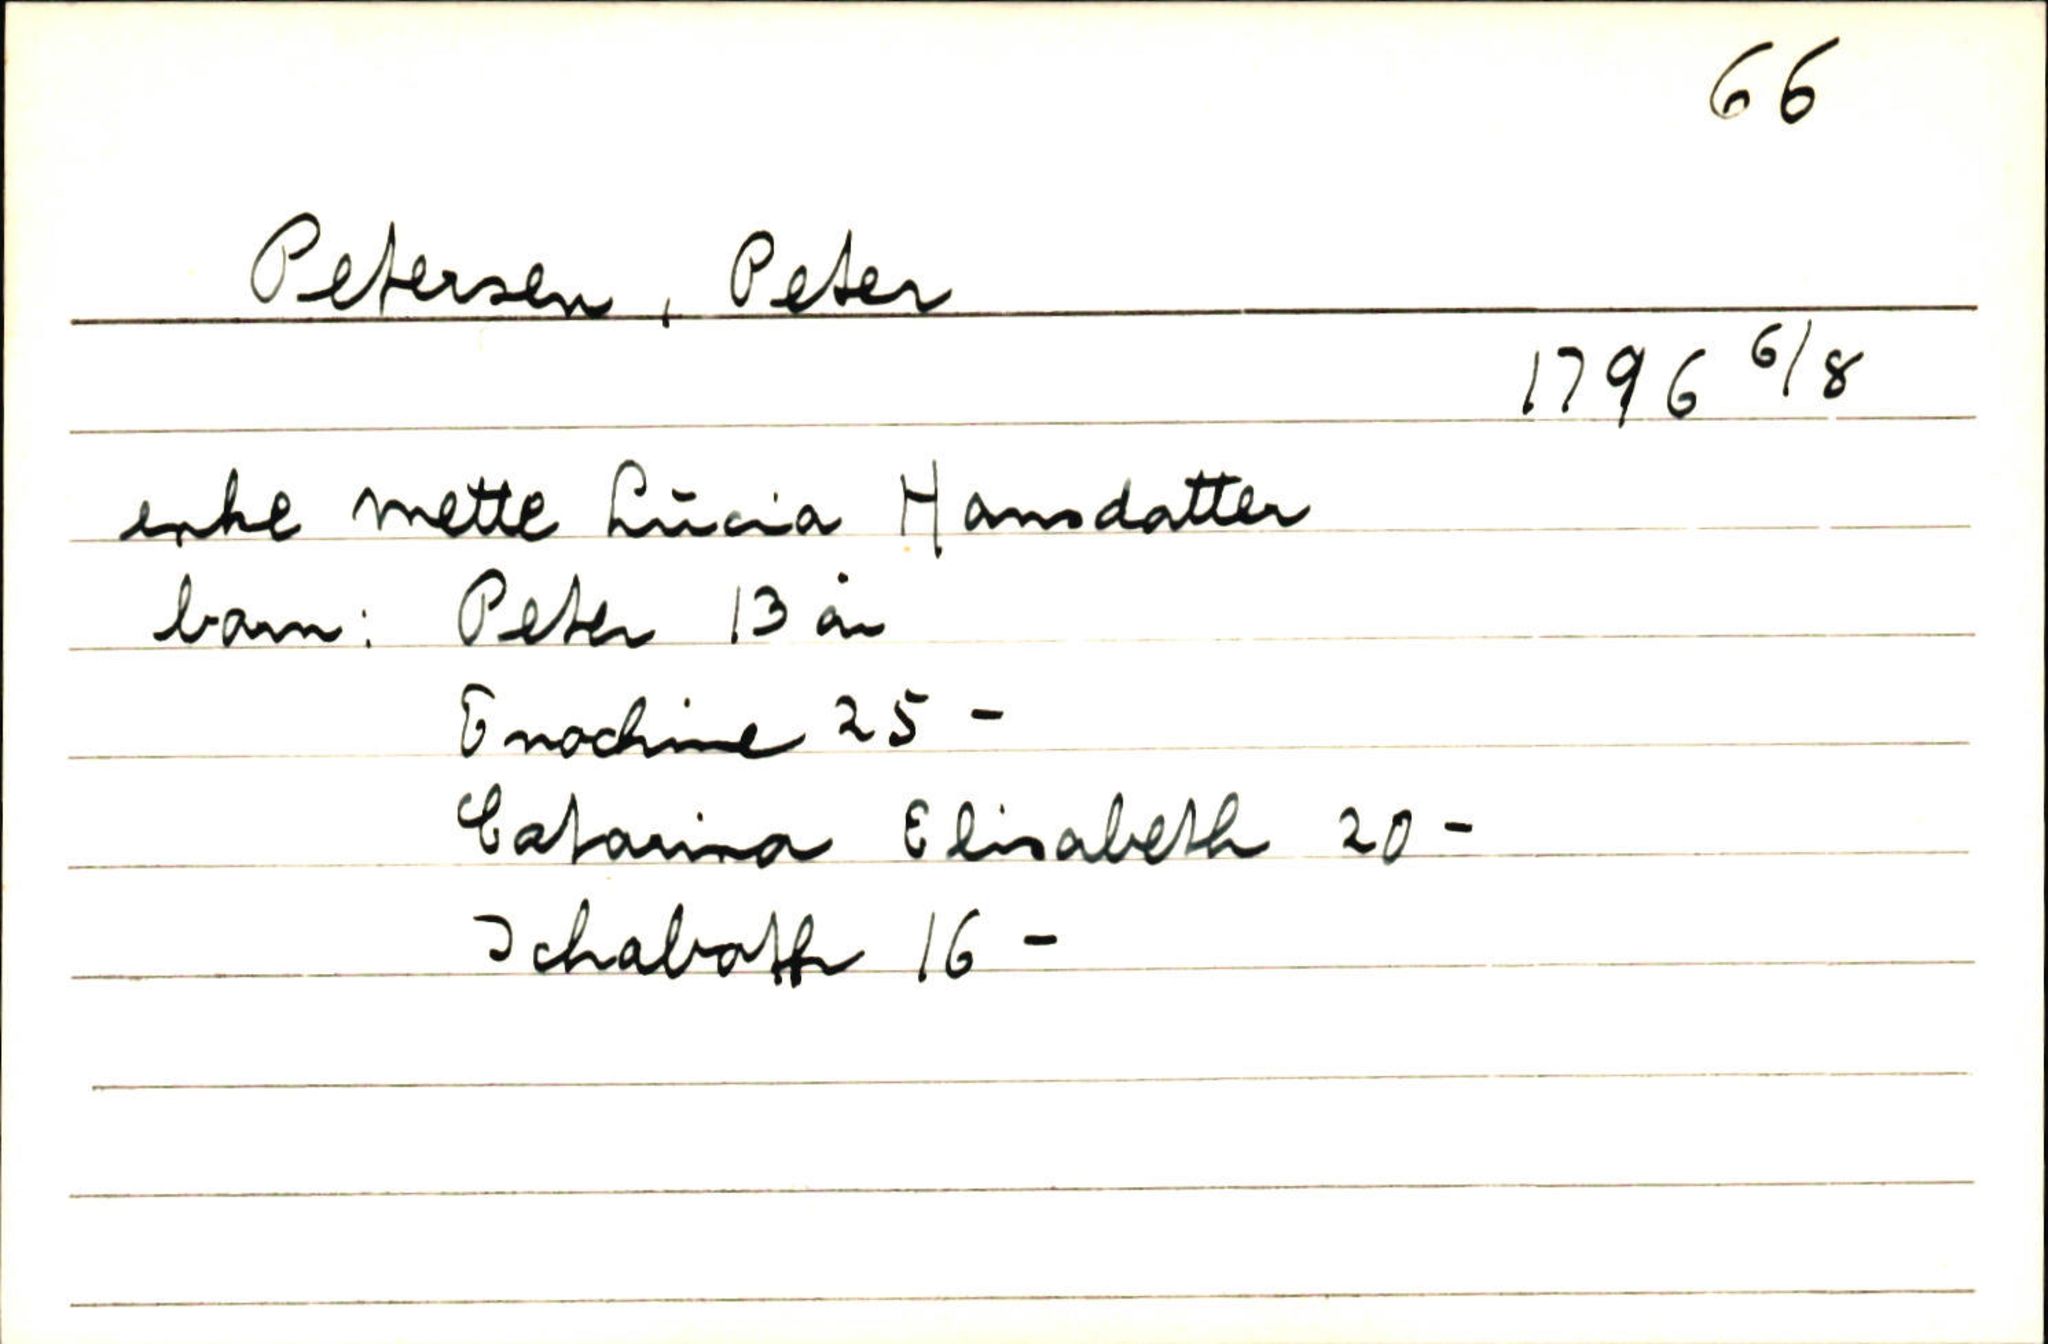 66
Petersen, Peter
1796 6/8
enke Mette Lucia Hansdatter
barn: Peter 13 år
Enochine 25 -
Catarina Elisabeth 20 -
Ichaboth 16 -